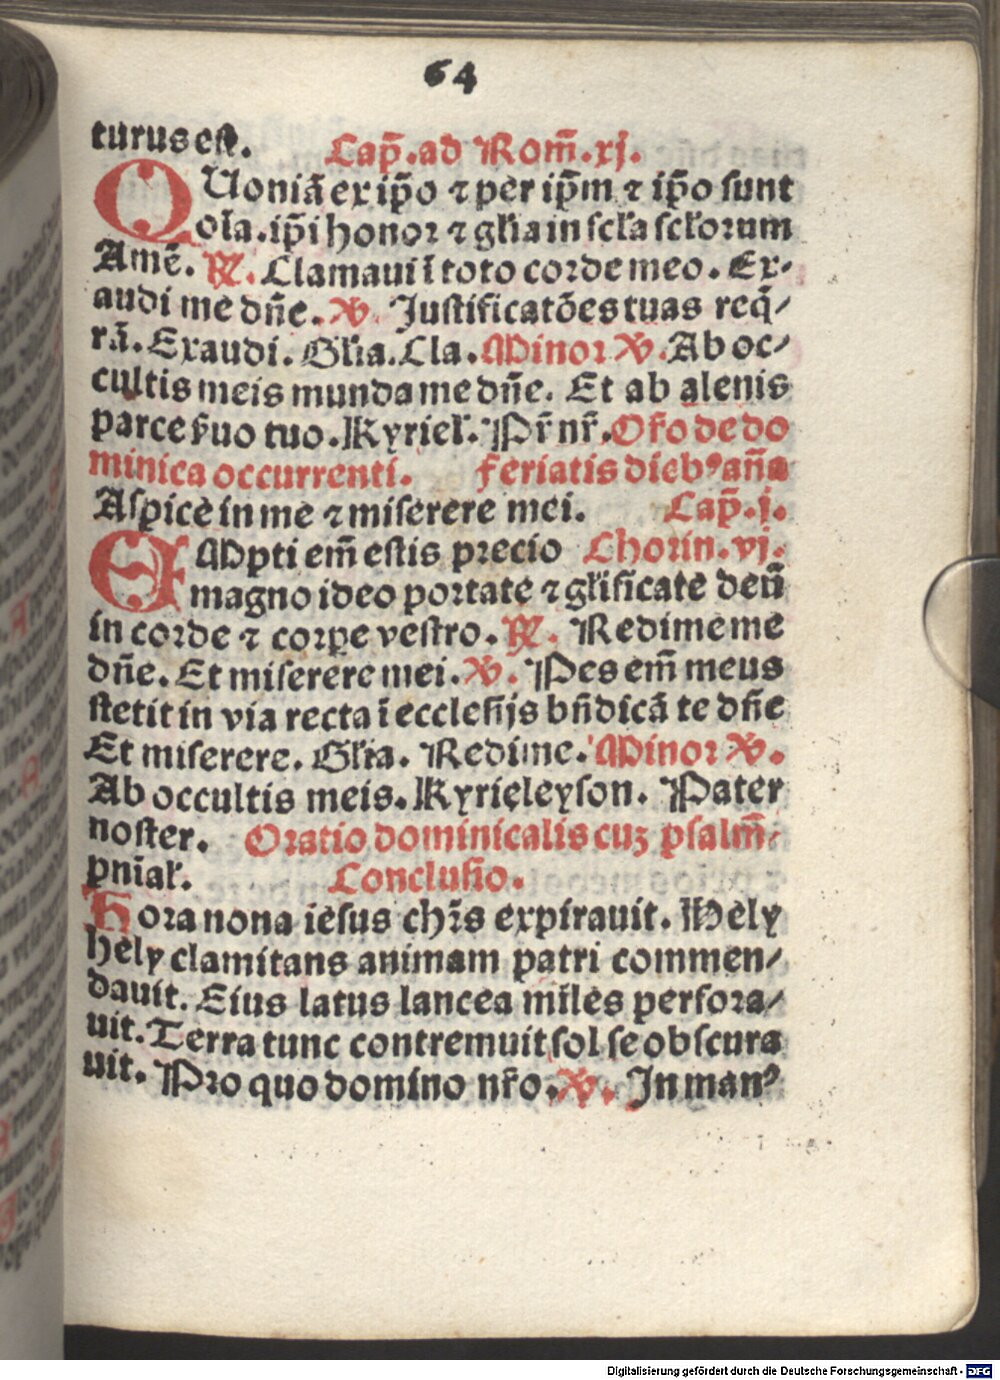 64
turus est. Cap̄.ad Rom̄.xj.
QUoniā ex ip̄o ⁊ per ip̄m ⁊ ip̄o sunt
oīa.ip̄i honoꝛ ⁊ gl̄ia in scl̄a scl̄oꝛum
Amē. ℟. Clamaui ī toto coꝛde meo. Ex-
audi me dn̄e. ℣. Justificatōes tuas req̄/
rā. Exaudi. Gl̄ia. Cla. Minoꝛ ℣. Ab oc/
cultis meis munda me dn̄e. Et ab alenis
parce s̄uo tuo. Kyriel̄. Pr̄ nr̄. Or̄o de do
minica occurrenti. Feriatis dieb⁹ añā
Aspice in me ⁊ miserere mei. Cap̄.j.
EMpti em̄ estis precio Choꝛin.vj.
magno ideo poꝛtate ⁊ gl̄ificate deū
in coꝛde ⁊ coꝛꝑe vestro. ℟. Redime me
dn̄e. Et miserere mei. ℣. Pes em̄ meus
stetit in via recta ī ecclesijs bn̄dicā te dn̄e
Et miserere. Gl̄ia. Redime. Minoꝛ ℣.
Ab occultis meis. Kyrieleyson. Pater
noster. Oꝛatio dominicalis cuꝫ psalm̄.
pn̄ial̄. Conclusio.
Hoꝛa nona iesus chr̄s expirauit. Hely
hely clamitans animam patri commen/
dauit. Eius latus lancea miles perfoꝛa/
uit. Terra tunc contremuit sol se obscura
uit. Pꝛo quo domino nr̄o. ℣. In man⁹
Digitalisierung gefördert durch die Deutsche Forschungsgemeinschaft - DFG